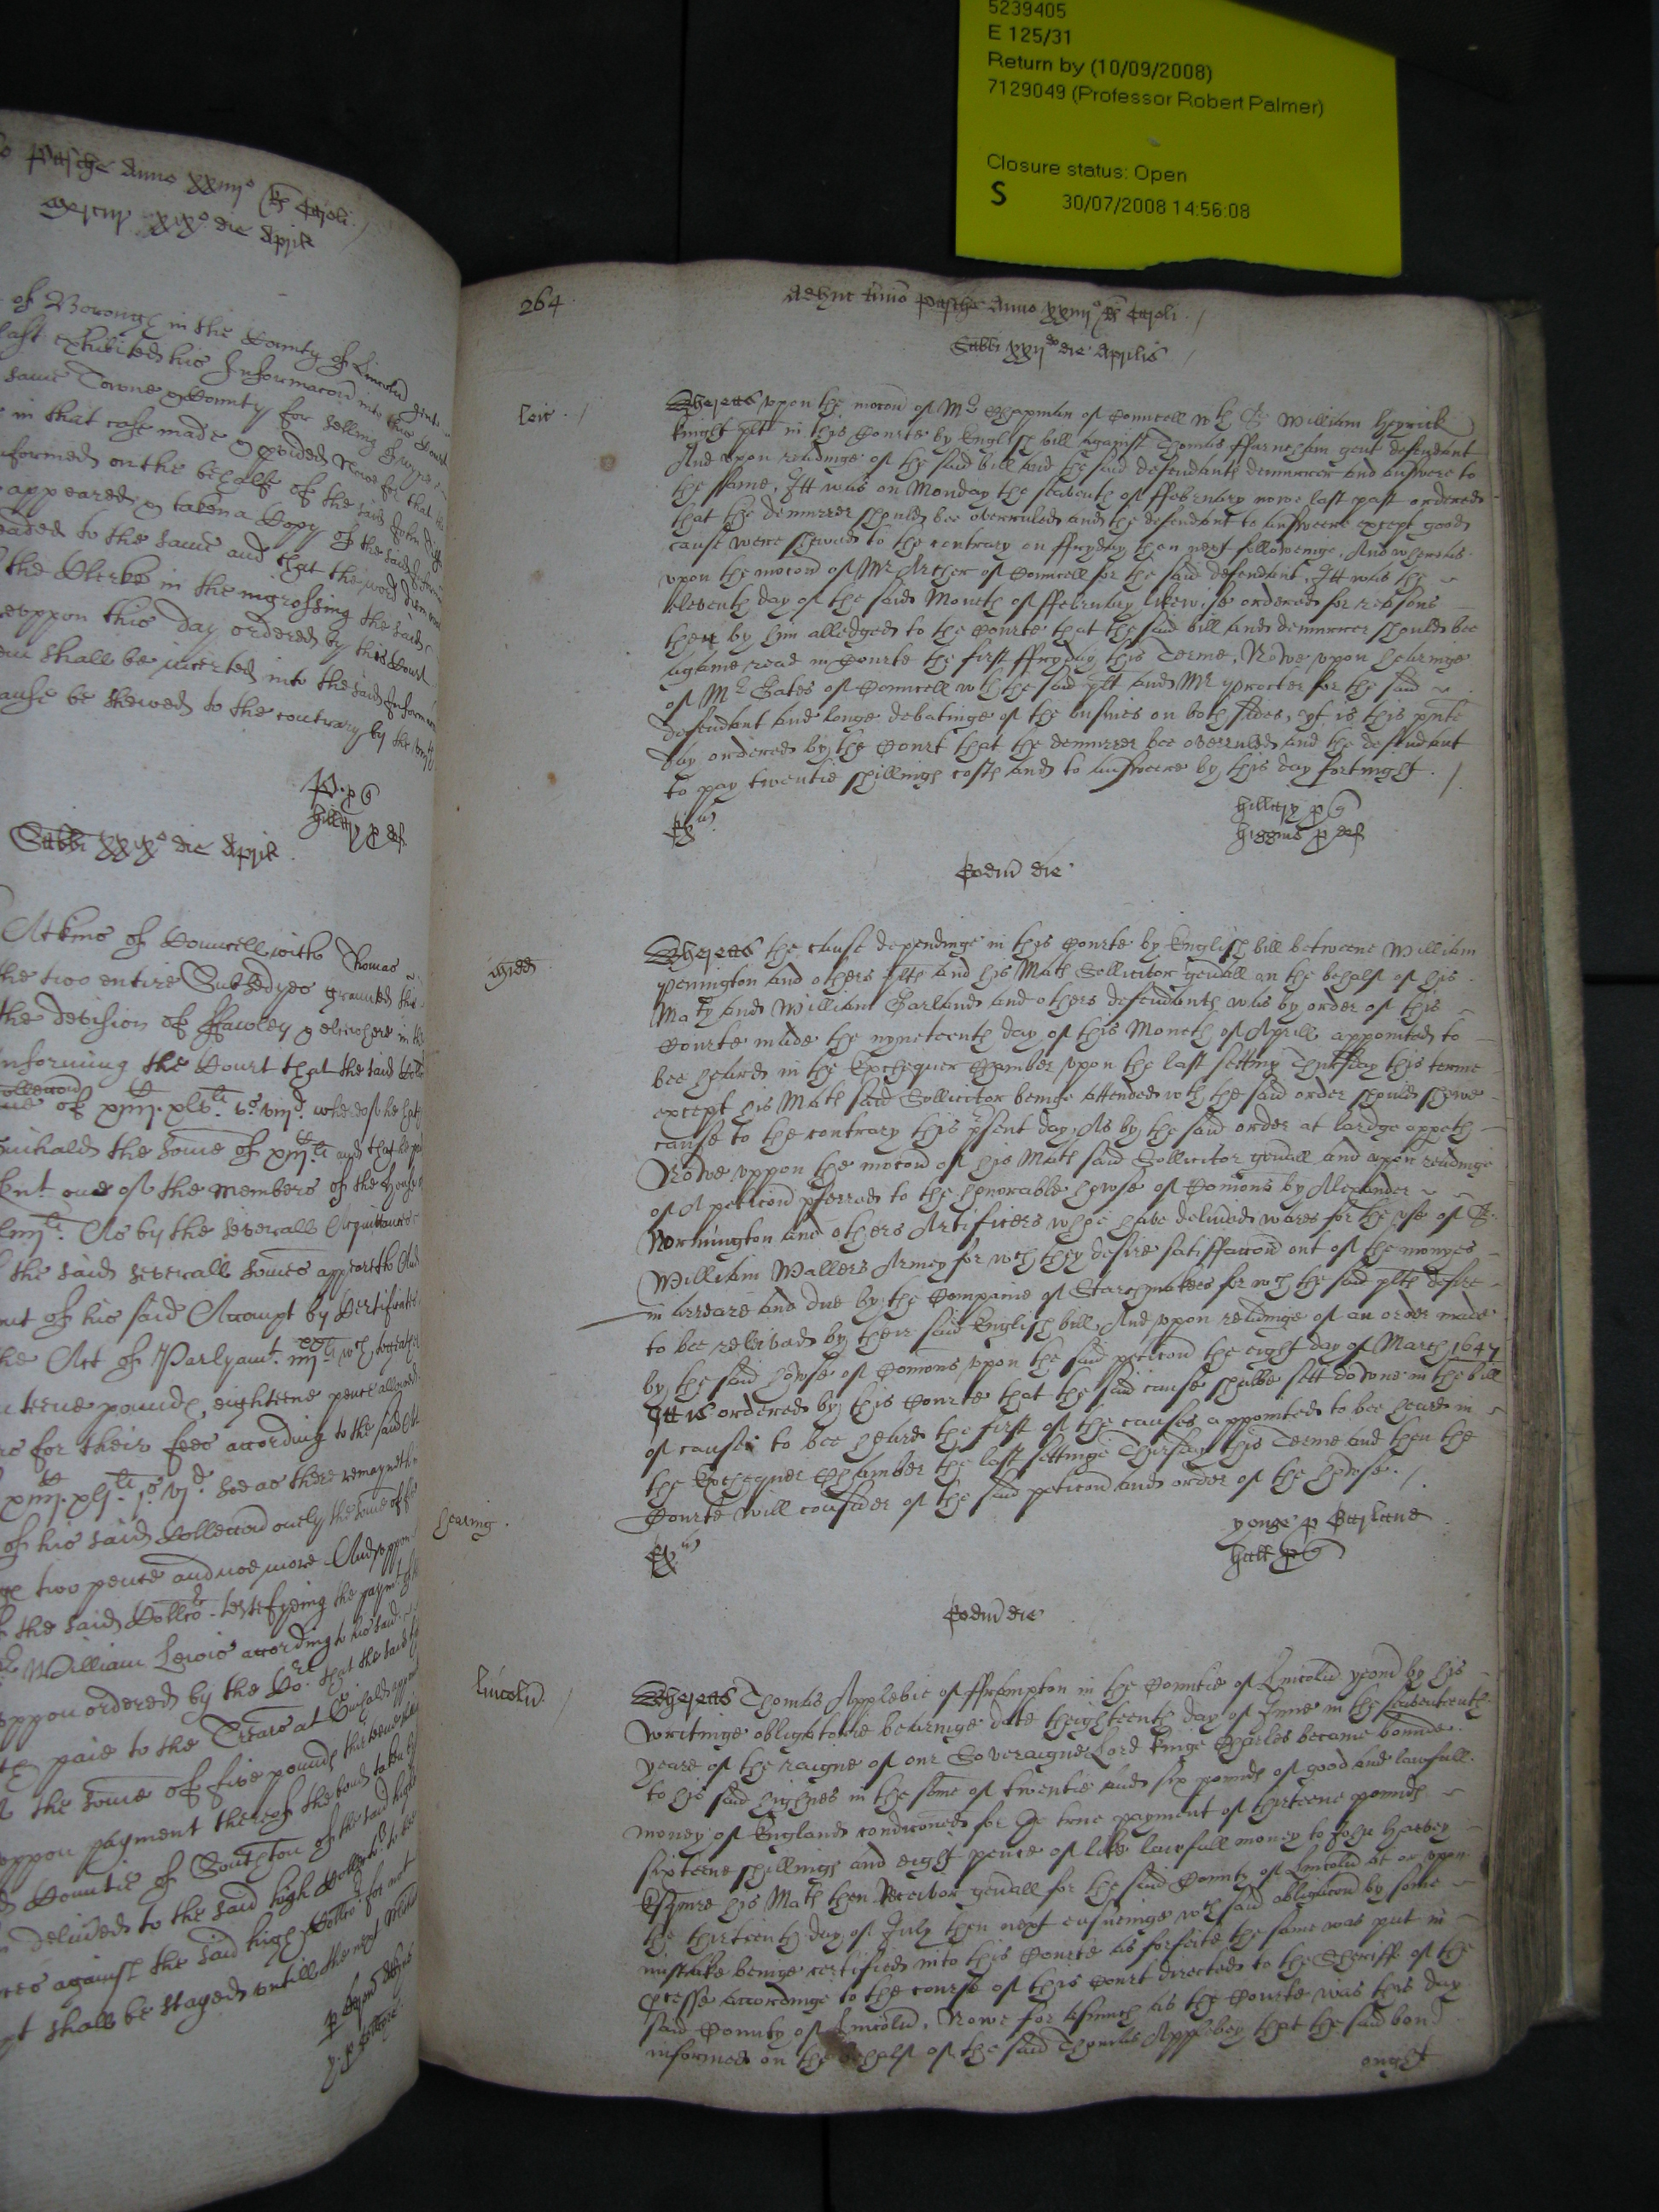 5239405
E 125/31
Return by (10/09/2008)
7129049 (Professor Robert Palmer)
Closure status: Open
S 30/07/2008 14:56:08
Pasche Anno xxiiijo Rs Caroli
xixo die Aprilis
of Borough in the County of Lincoln gent
last exhibited his Informacon into this Court
same Towne & County for selling
in that case made & provided Nowe for that
formed on the behalfe of the said John
appeared & taken a Copy of the said
to the same and that the word
the Clerke in the ingrossing the said
uppon this day ordered by this Court
shall be incerted into the said Informacon
cause be shewed to the contrary by the
Sabbi xxixo die Aprilis
Atkins of Councell with Thomas
the two entire Subsedyes graunted
the devision of ffawley & elsewhere in
Informing the Court that the said
the some of
one of the members of the House
As by the severall Acquittances
the said severall somes appeareth And
of his said Accompt by Certificate
the Act of Parlyamt.
pounds, eighteene pence allowed
for their fees according to the said
soe as there remayneth
of his said Colleccon onely the some of
two pence and noe more And uppon
the said Collcor testifyeing the paymt
William Lewis according to his said
uppon ordered by the Cort that the said
paie to the
the some of five pounds
uppon payment thereof the bond taken
Countie of Southton of the said high
delivered to the said high Collector to be
against the said high Collcor for not
shall be stayed untill the next
264
Adhuc Termino Pasche Anno xxiiijo Rs Caroli
Sabbi xxijdo die Aprilis
Leic
Whereas uppon the mocon of Mr Chapman of Councell wth Sr William Heyrick
knight plt in this Courte by English bill against Thomas ffarneham gent defendant
And upon readinge of the said bill and the said defendants demurrer and answere to
the same, Itt was on Monday the seaventh of ffebruary nowe last past ordered
that the demurrer should bee overruled and the defendant to answere except good
cause were shewed to the contrary on ffryday then next followeinge, And whereas
upon the mocon of Mr Archer of Councell for the said defendant, Itt was the
Eleventh day of the said Moneth of ffebruary likewise ordered for reasons
then by him alledged to the Courte that the said bill and demurrer should bee
againe read in Courte the first ffryday this Terme, Nowe upon hearinge
of Mr Bates of Councell wth the said plt and Mr Procter for the said
defendant and longe debatinge of the busines on both sides, yt is this pnte
day ordered by the Court that the demurrer bee overruled and the defendant
to pay twentie shillings costs and to answere by this day fortnight.
Exr
Hillary p Q
Higgins p def
Eodm die
Midd
Whereas the cause dependinge in this Courte by English bill betweene William
Penington and others plts and his Mats Sollicitor genall on the behalf of his
Maty and William Barland and others defendants was by order of this
Courte made the nyneteenth day of this Moneth of Aprill appointed to
bee heard in the Exchequer Chamber upon the last setting Thursday this terme
except his Mats said Sollicitor beinge attended wth the said order should shewe
cause to the contrary this psent day, As by the said order at lardge appeth
Nowe uppon the mocon of his Mats said Sollicitor genall and upon readinge
of A peticon pferred to the honorable howse of Comons by Alexander
Normington and others Artificers whoe have delivered wares for the use of Sr
William Wallers Armey for wch they desire satisfaccon out of the monyes
in arreare and due by the Companie of Starchmakers for wch the said plts desire
to bee releived by their said English bill, And upon readinge of an order made
by the said howse of Comons upon the said peticon the eight day of March 1647
Itt is ordered by this Courte that the said cause shalbe sett downe in the bill
of causes to bee heard the first of the causes appointed to bee heard in
the Exchequer Chamber the last settinge Thursday this Terme and then the
Courte will consider of the said peticon and order of the howse.
hearing
Exr
Yonge p Barland
Hall p Q
Eodm die
Lincoln
Whereas Thomas Applebie of fframpton in the Countie of Lincoln yeom by his
writinge obligatorie bearinge date theighteenth day of June in the seaventeenth
yeare of the raigne of our Soveraigne Lord kinge Charles became bounde
to his said highnes in the some of twentie and six pounds of good and lawfull
money of England condiconed for the true payment of thirteene pounds
sixteene shillings and eight pence of like lawfull money to John Harvey
Esquire his Mats then Receivor genall for the said County of Lincoln at or upon
the thirteenth day of July then next ensueinge wch said obligacon by some
mistake beinge certified into this Courte as forfeite the same was put in
pcesse accordinge to the course of this Court directed to the Sheriff of the
said County of Lincoln, Nowe for asmuch as the Courte was this day
informed on the behalf of the said Thomas Applebey that the said bond
ought